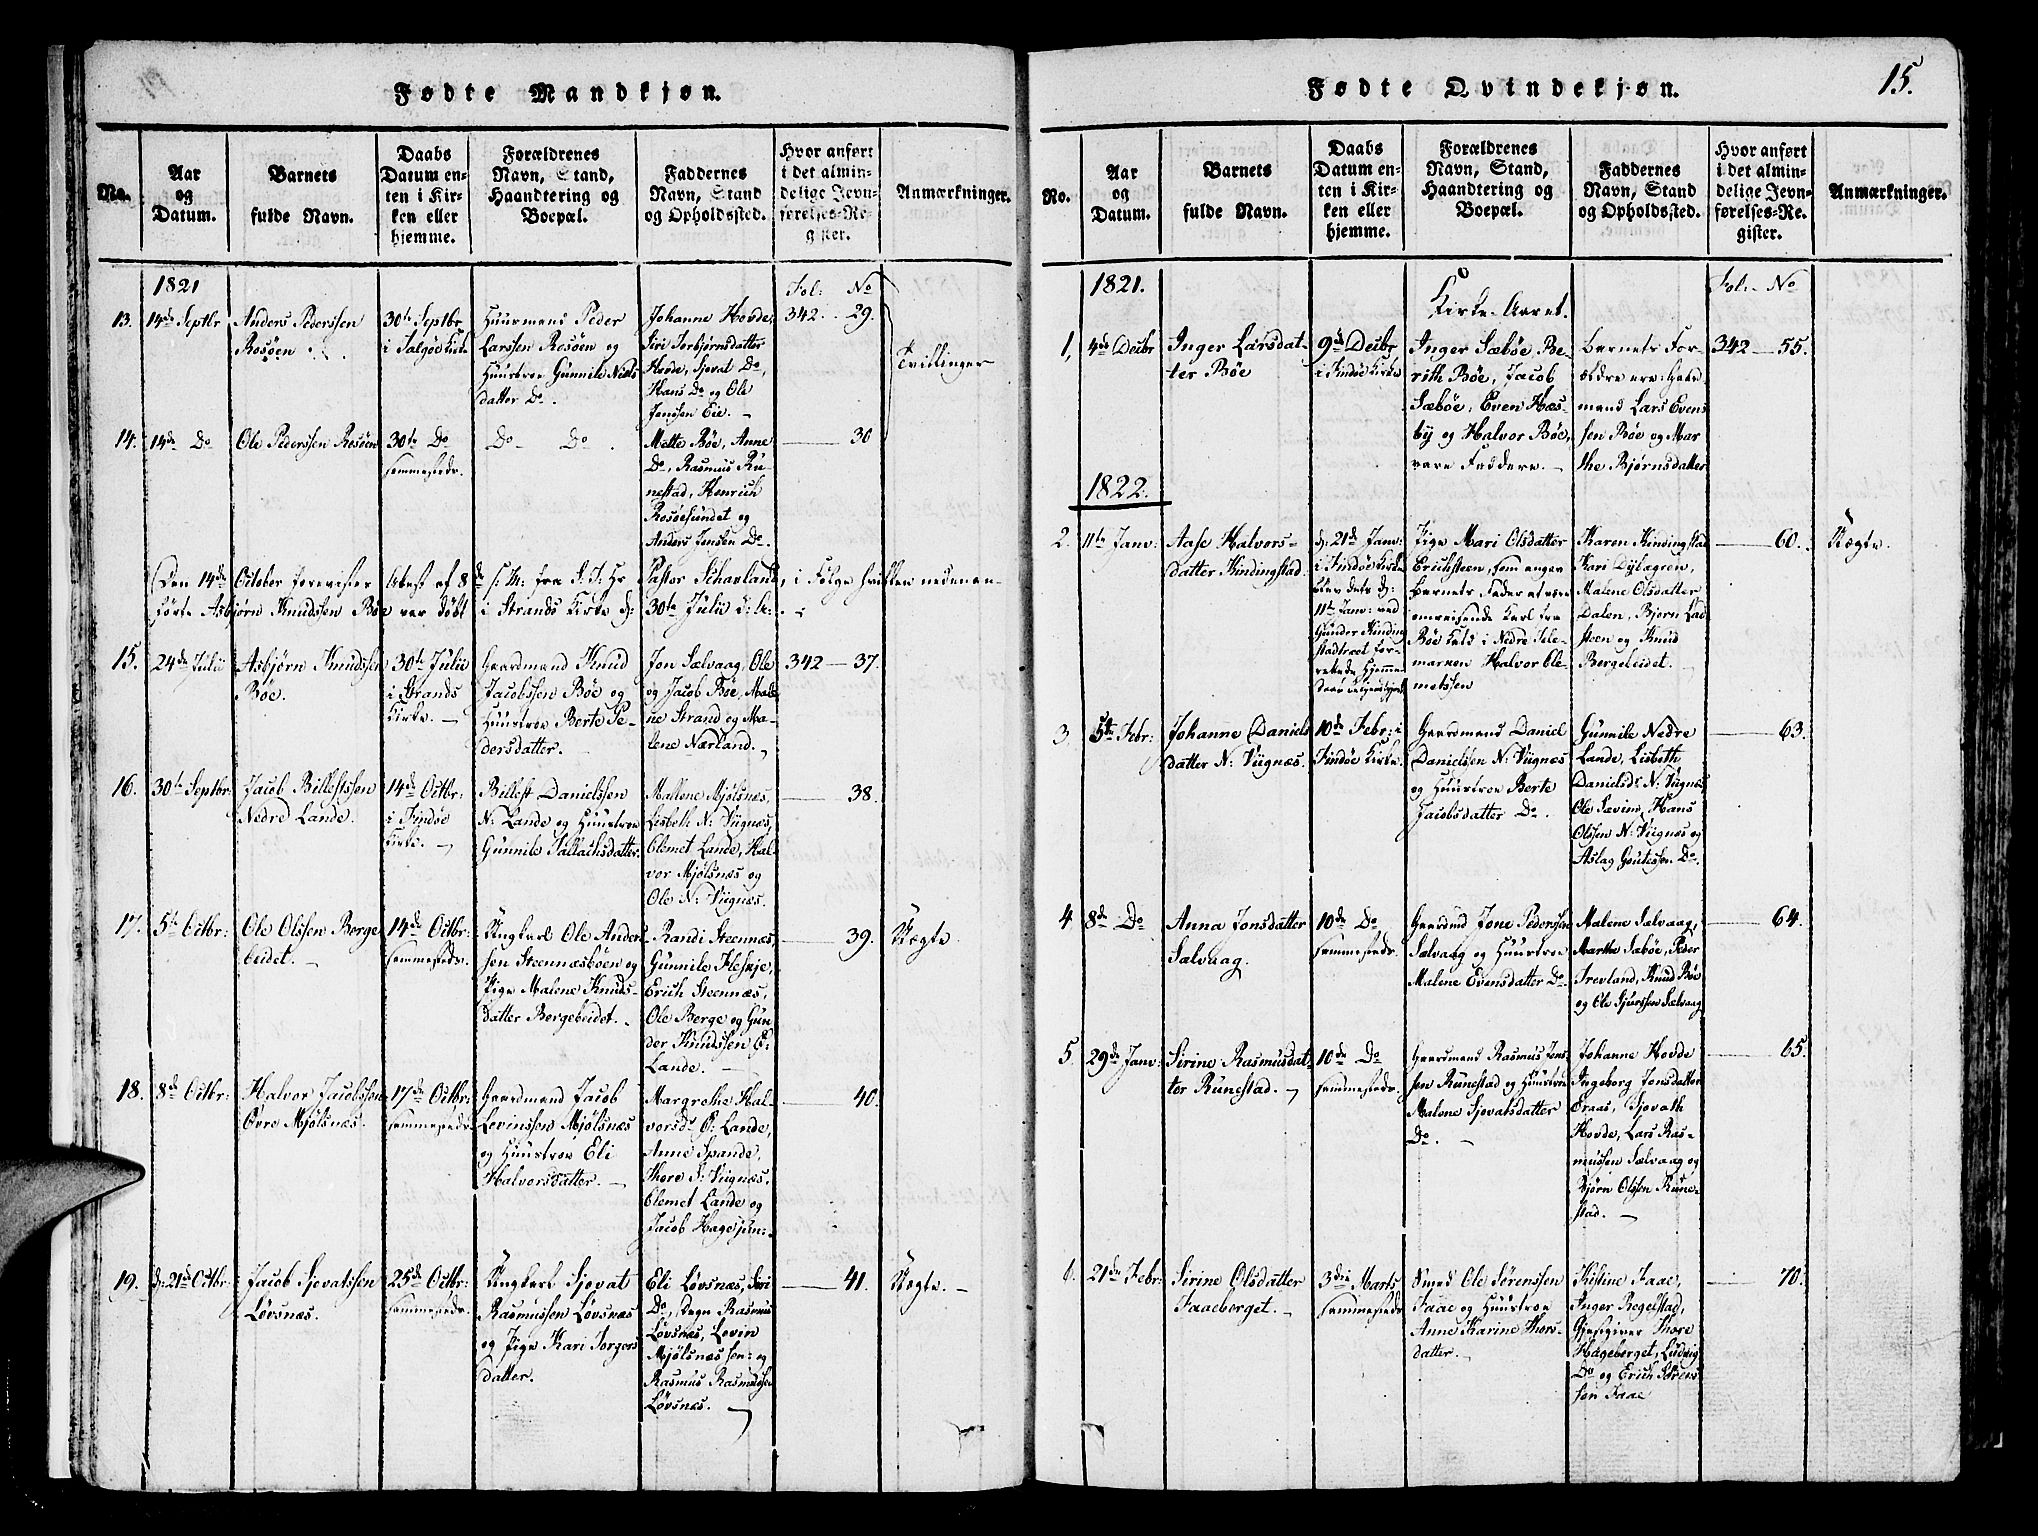 Fødte Mandkjøn.
No.
Aar og Datum.
Barnets fulde Navn.
Daabs Datum enten i Kirken eller hjemme.
Forældrenes Navn, Stand, Haandtering og Boepæl.
Faddernes Navn, Stand og Opholdssted.
Hvor anført i det almindelige Jevnførelses-Register.
Anmærkninger.
1821
Fol: No
13.
14de Septbr
Anders Pederssen
Rosøen
30te Septbr
i Talgøe Kirke
Huusmand Peder
Larssen Rosöen og
Huustroe Gunnile Niels
datter Do.
Johanne Hovde,
Siri Torbjørnsdatter
Hovde, Sjovat Do,
Hans Do og Ole
Jenssen Eie.
342. 29.
Tvillinger
14.
14de Do
Ole Pederssen Rosöen
30te Do
sammesteds.
Do Do.
Mette Bøe, Anne
Do, Rasmus Ru-
nestad, Henrich
Rosøesundet og
Anders Jensen Do.
30
Den 14de October foreviiser Attest af 8de s: M: fra S. T. Hr Pastor Scharland, i Følge hvilken nedenan-
førte Asbjørn Knudssen Bøe var døbt i Strands Kirke d: 30te Julii d: A:
15.
24de Julii
Asbjørn Knudssen
Bøe.
30te Julii
i Strands
Kirke.
Gaardmand Knud
Jacobssen Böe og
Huustroe Berte Pe-
dersdatter.
Jon Sælvaag, Ole
og Jacob Bøe, Male-
ne Strand og Ma-
lene Nærland.
342 — 37.
16.
30te Septbr:
Jacob Billestssen
Nedre Lande.
14de Octbr:
i Findöe
Kirke.
Billest Danielssen
N: Lande og Huustroe
Gunnile Tallachsdatter.
Mallene Mjølsnæs,
Lisbeth N: Viignæs,
Clemet Lande, Hal-
vor Mjølsnæs og
Ole N: Viignæs.
38.
17.
5te Octbr:
Ole Olssen Berge
beidet.
14de Octbr:
sammesteds.
Ungkarl Ole Anders-
sen Steennæsböen og
Pige Malene Knuds-
datter Bergebeidet.
Randi Steennæs,
Gunnile Heskje,
Erich Steennæs,
Ole Berge og Gun-
der Knudssen Ø:
Lande.
39.
Uægte.
18.
8de Octbr:
Halvor Jacobssen
Övre Mjølsnæs.
17de Octbr:
sammesteds.
Gaardmand Jacob
Levinssen Mjølsnæs
og Huustroe Eli
Halvorsdatter.
Margrethe Hal-
vorsd: Ø: Lande,
Anne Spande,
Thore S: Viignæs,
Clemet Lande og
Jacob Hagesjen:
40.
19.
d: 21de Octbr:
Jacob Sjovatssen
Løvsnæs.
25de Octbr:
sammesteds.
Ungkarl Sjovat
Rasmussen Løvsnæs
og Pige Kari Torgers
datter.
Eli Løvsnæs, Siri
Do, Degn Rasmus
Løvsnæs, Levin
Mjølsnæs sen: og
Rasmus Rasmussen
Løvsnæs.
41.
Uægte.
Fødte Qvindekjøn.
15.
No.
Aar og Datum.
Barnets fulde Navn.
Daabs Datum enten i Kirken eller hjemme.
Forældrenes Navn, Stand, Haandtering og Boepæl.
Faddernes Navn, Stand og Opholdssted.
Hvor anført i det almindelige Jevnførelses-Register.
Anmærkninger.
1821.
Kirke-Aaret.
Fol: No
1.
4de Decbr
Inger Larsdat-
ter Bøe
9de Decbr
i Findöe Kirke
Inger Sæbøe Be-
rith Bøe, Jacob
Sæbøe, Even Hæs-
by og Halvor Bøe,
vare Faddere.
Barnets For-
ældre ere: Gaard-
mand Lars Evens
sen Böe og Mar
the Bjørnsdatter
342 — 55.
1822.
2.
11te Janv:
Aase Halvors-
datter Kindingstad.
d: 21de Janv:
i Findöe Kirke
blev dets d:
11te Janv: ved
Gunder Kinding
stad
Pige Mari Olsdatter
Erichsteen, som angav
Barnets Fader at være
omreisende Karl fra
Böe Kald i Nedre Tele-
marken Halvor Cle-
metssen
Karen Kindingstad
Kari Dybagrøn,
Malene Olsdatter
Dalen, Bjørn Lad
steen og Knud
Bergebeidet.
60.
Uægte.
3.
5te Febr:
Johanne Daniels
datter N: Viignæs.
10de Febr: i
Findöe Kirke.
Gaardmand Daniel
Danielssen N: Viignæs
og Huustroe Berte
Jacobsdatter Do.
Gunnile Nedre
Lande, Lisbeth
Danielsdr N: Viignæs
Ole Sævin, Hans
Olssen N: Viignæs og
Aslag Goutessen Do.
63.
4.
8de Do
Anna Jonsdatter
Sælvaag.
10de Do
sammesteds.
Gaardmd Jone Pederssen
Sælvaag og Huustroe
Malene Evensdatter Do.
Malene Sælvaag,
Marthe Sæbøe, Peder
Trevland, Knud Böe
og Ole Gjurssen Sælvaag
64.
5.
29de Janv:
Sirine Rasmusdat-
ter Runestad.
10de Do
sammesteds.
Gaardmand Rasmus Jons-
sen Runestad og Huustroe
Malene Sjovatsdatter
Do.
Johanne Hovde
Ingeborg Jonsdatter
Eraas, Sjovath
Hovde, Lars Ras-
mussen Sælvaag og
Bjørn Olssen Rune-
stad.
65.
6.
21de Febr:
Sirine Olsdatter
Faaeberget.
3die Marts
sammesteds
Smed Ole Sørenssen
Faae og Huustroe
Anne Karine Thors-
datter.
Kistine Faae,
Inger Regelstad,
Gjestgiver Thore
Hageberget, Ludvig
Do og Erich Sörens
sen Faae
70.